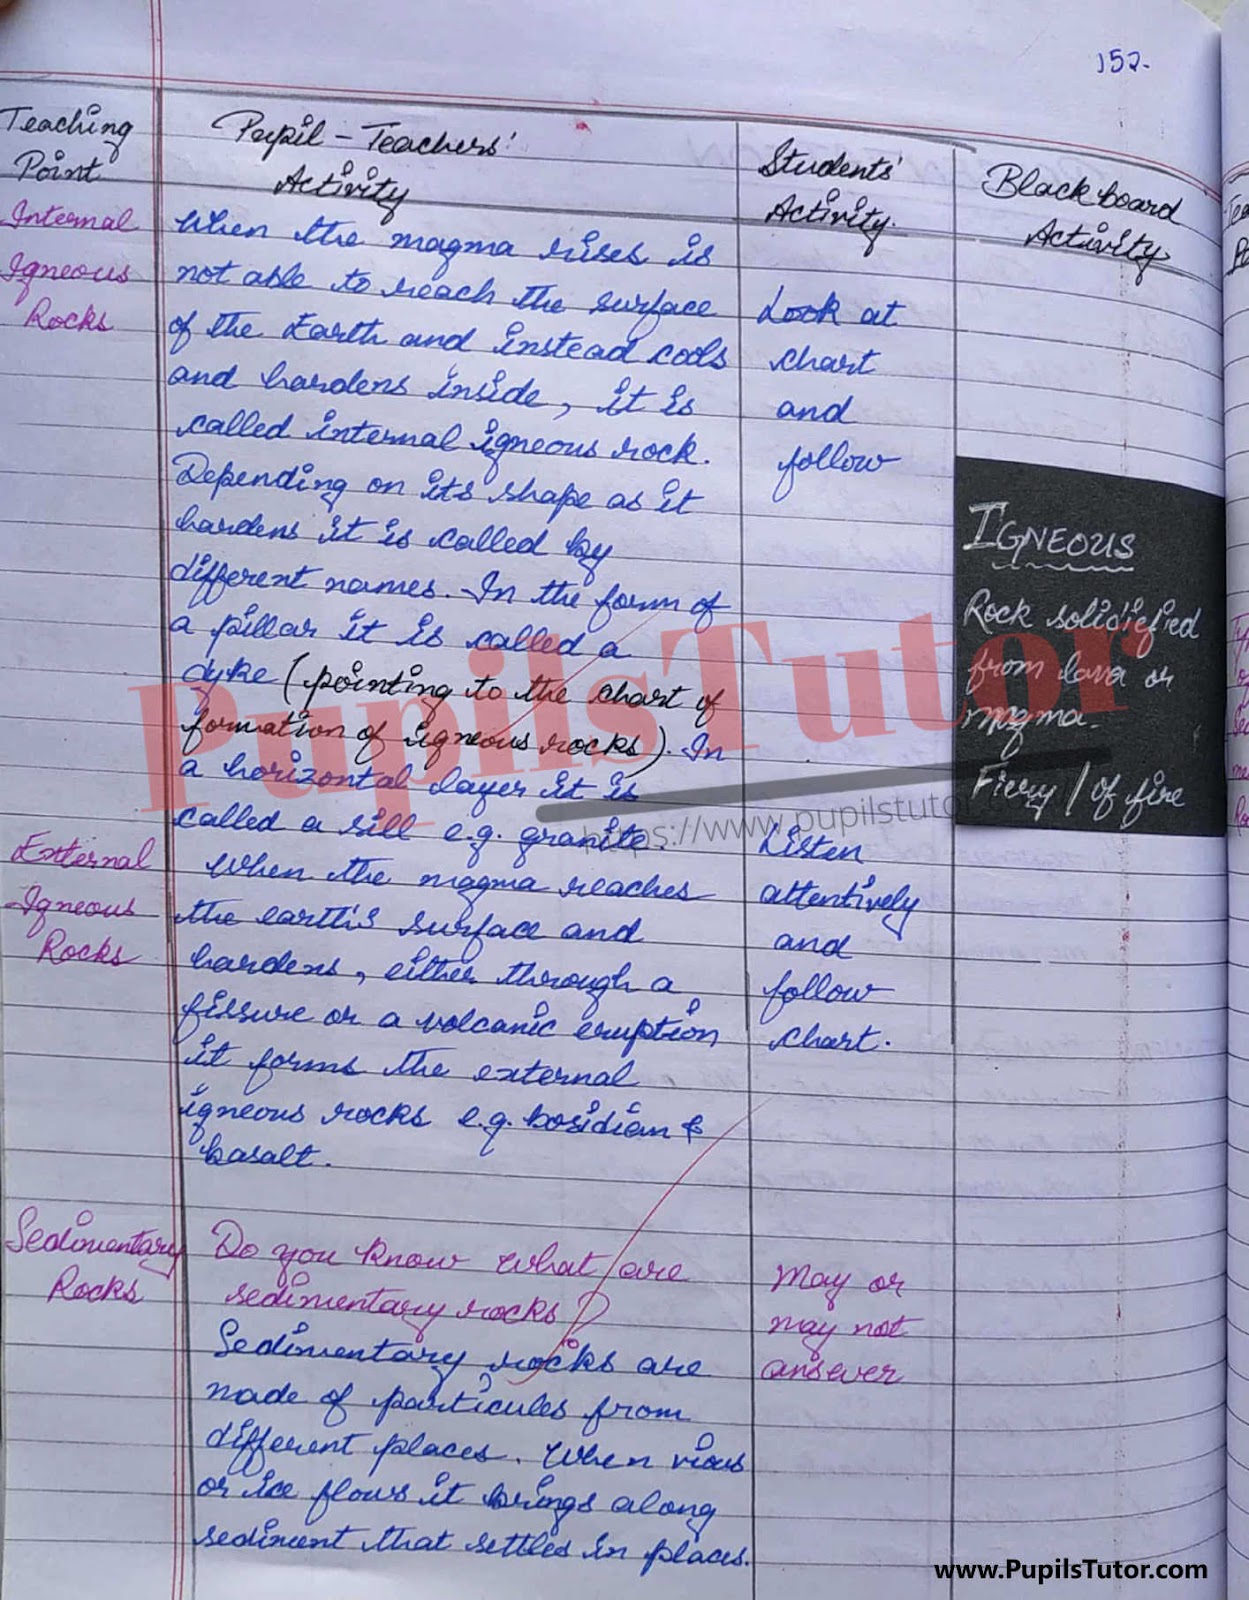 152.
Teaching
Point
Pupil - Teachers'
Activity
Students'
Activity.
Black board
Activity
Internal
Igneous
Rocks
When the magma rises is
not able to reach the surface
of the Earth and instead cools
and hardens inside, it is
called internal igneous rock.
Depending on its shape as it
hardens it is called by
different names. In the form of
a pillar it is called a
dyke (pointing to the chart of
formation of igneous rocks). In
a horizontal layer it is
called a sill e.g. granite.
Look at
chart
and
follow
IGNEOUS
Rock solidified
from lava or
magma.
Fiery / of fire
PupilsTutor
https://www.pupilstutor.com
External
Igneous
Rocks
When the magma reaches
the earth's surface and
hardens, either through a
fissure or a volcanic eruption
it forms the external
igneous rocks e.g. bosidian &
basalt.
Listen
attentively
and
follow
chart.
Sedimentary
Rocks
Do you know what are
sedimentary rocks?
Sedimentary rocks are
made of particules from
different places. When rious
or ice flows it brings along
sediment that settles in places.
May or
may not
answer
www.PupilsTutor.com